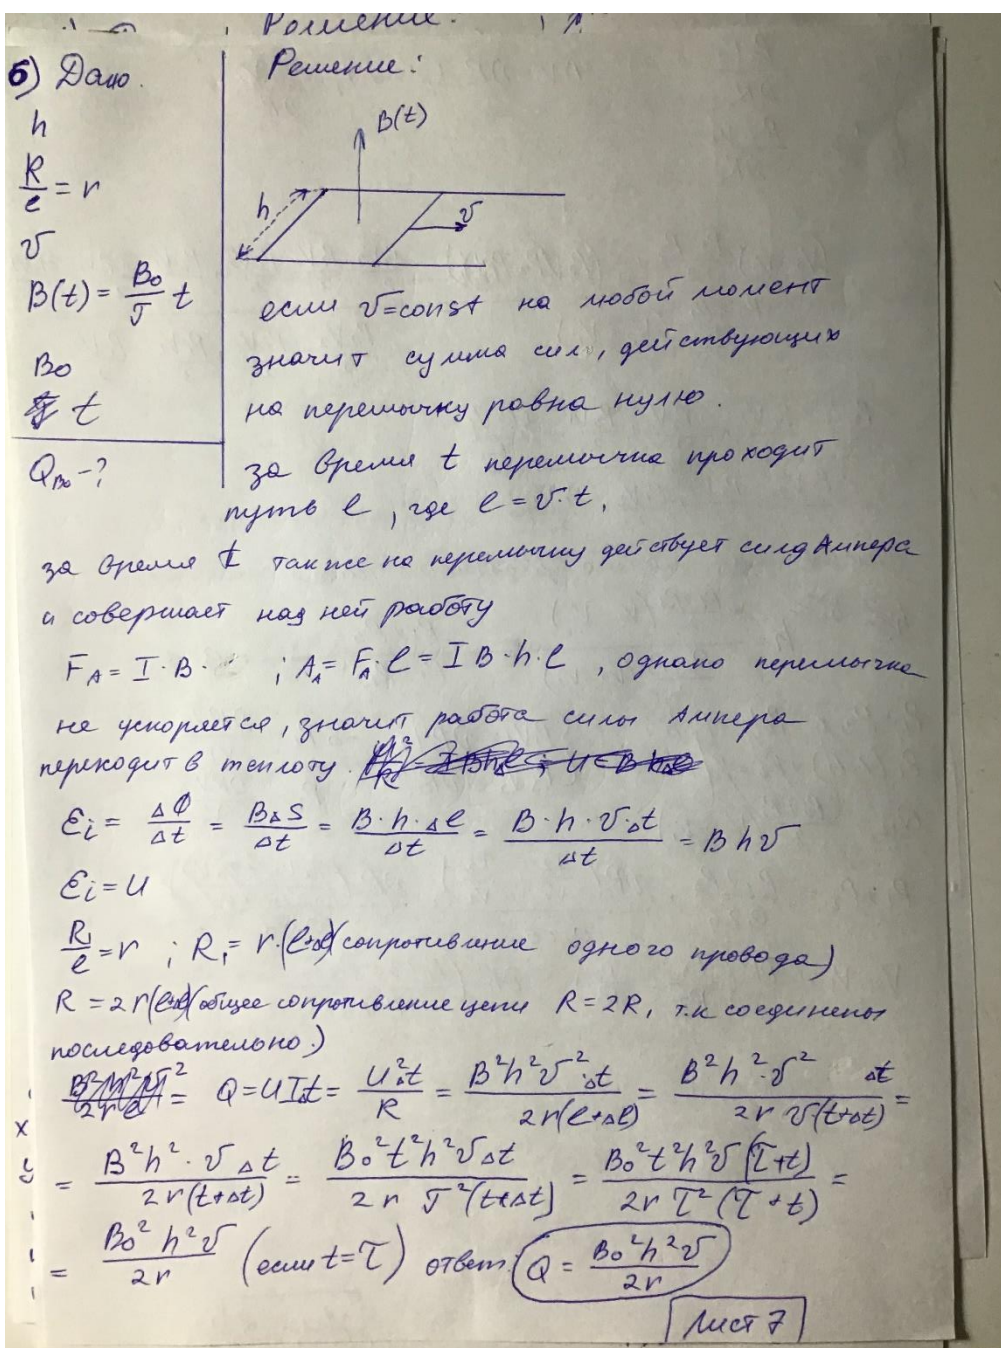 Решение.
б) Дано.
Решение:
h
R/e = r
v
B(t) = B₀/T t
B₀
t
Q_B₀ - ?
B(t)
h
v
если v=const на любой момент
значит сумма сил, действующих
на перемычку равна нулю.
за время t перемычка проходит
путь l, где l = v·t,
за время t также на перемычку действует сила Ампера
и совершает над ней работу
F_A = I·B· ; A_A = F_A·l = I B·h·l, однако перемычка
не ускоряется, значит работа силы Ампера
переходит в теплоту.
ℰi = ΔΦ/Δt = BΔS/Δt = B·h·Δl/Δt = B·h·v·Δt/Δt = Bhv
ℰi = U
R₁/l = r ; R₁ = r·(l+Δl)(сопротивление одного провода)
R = 2r(l+Δl)(общее сопротивление цепи R = 2R, т.к соединены
последовательно.)
= Q = UIΔt = U²Δt/R = B²h²v²·Δt/2r(l+Δl) = B²h²·v² Δt/2r v(t+Δt) =
= B²h²·vΔt/2r(t+Δt) = B₀²t²h²vΔt/2r T²(t+Δt) = B₀²t²h²v(T+t)/2r T²(T+t) =
= B₀²h²v/2r (если t=T) ответ: Q = B₀²h²v/2r
Лист 7